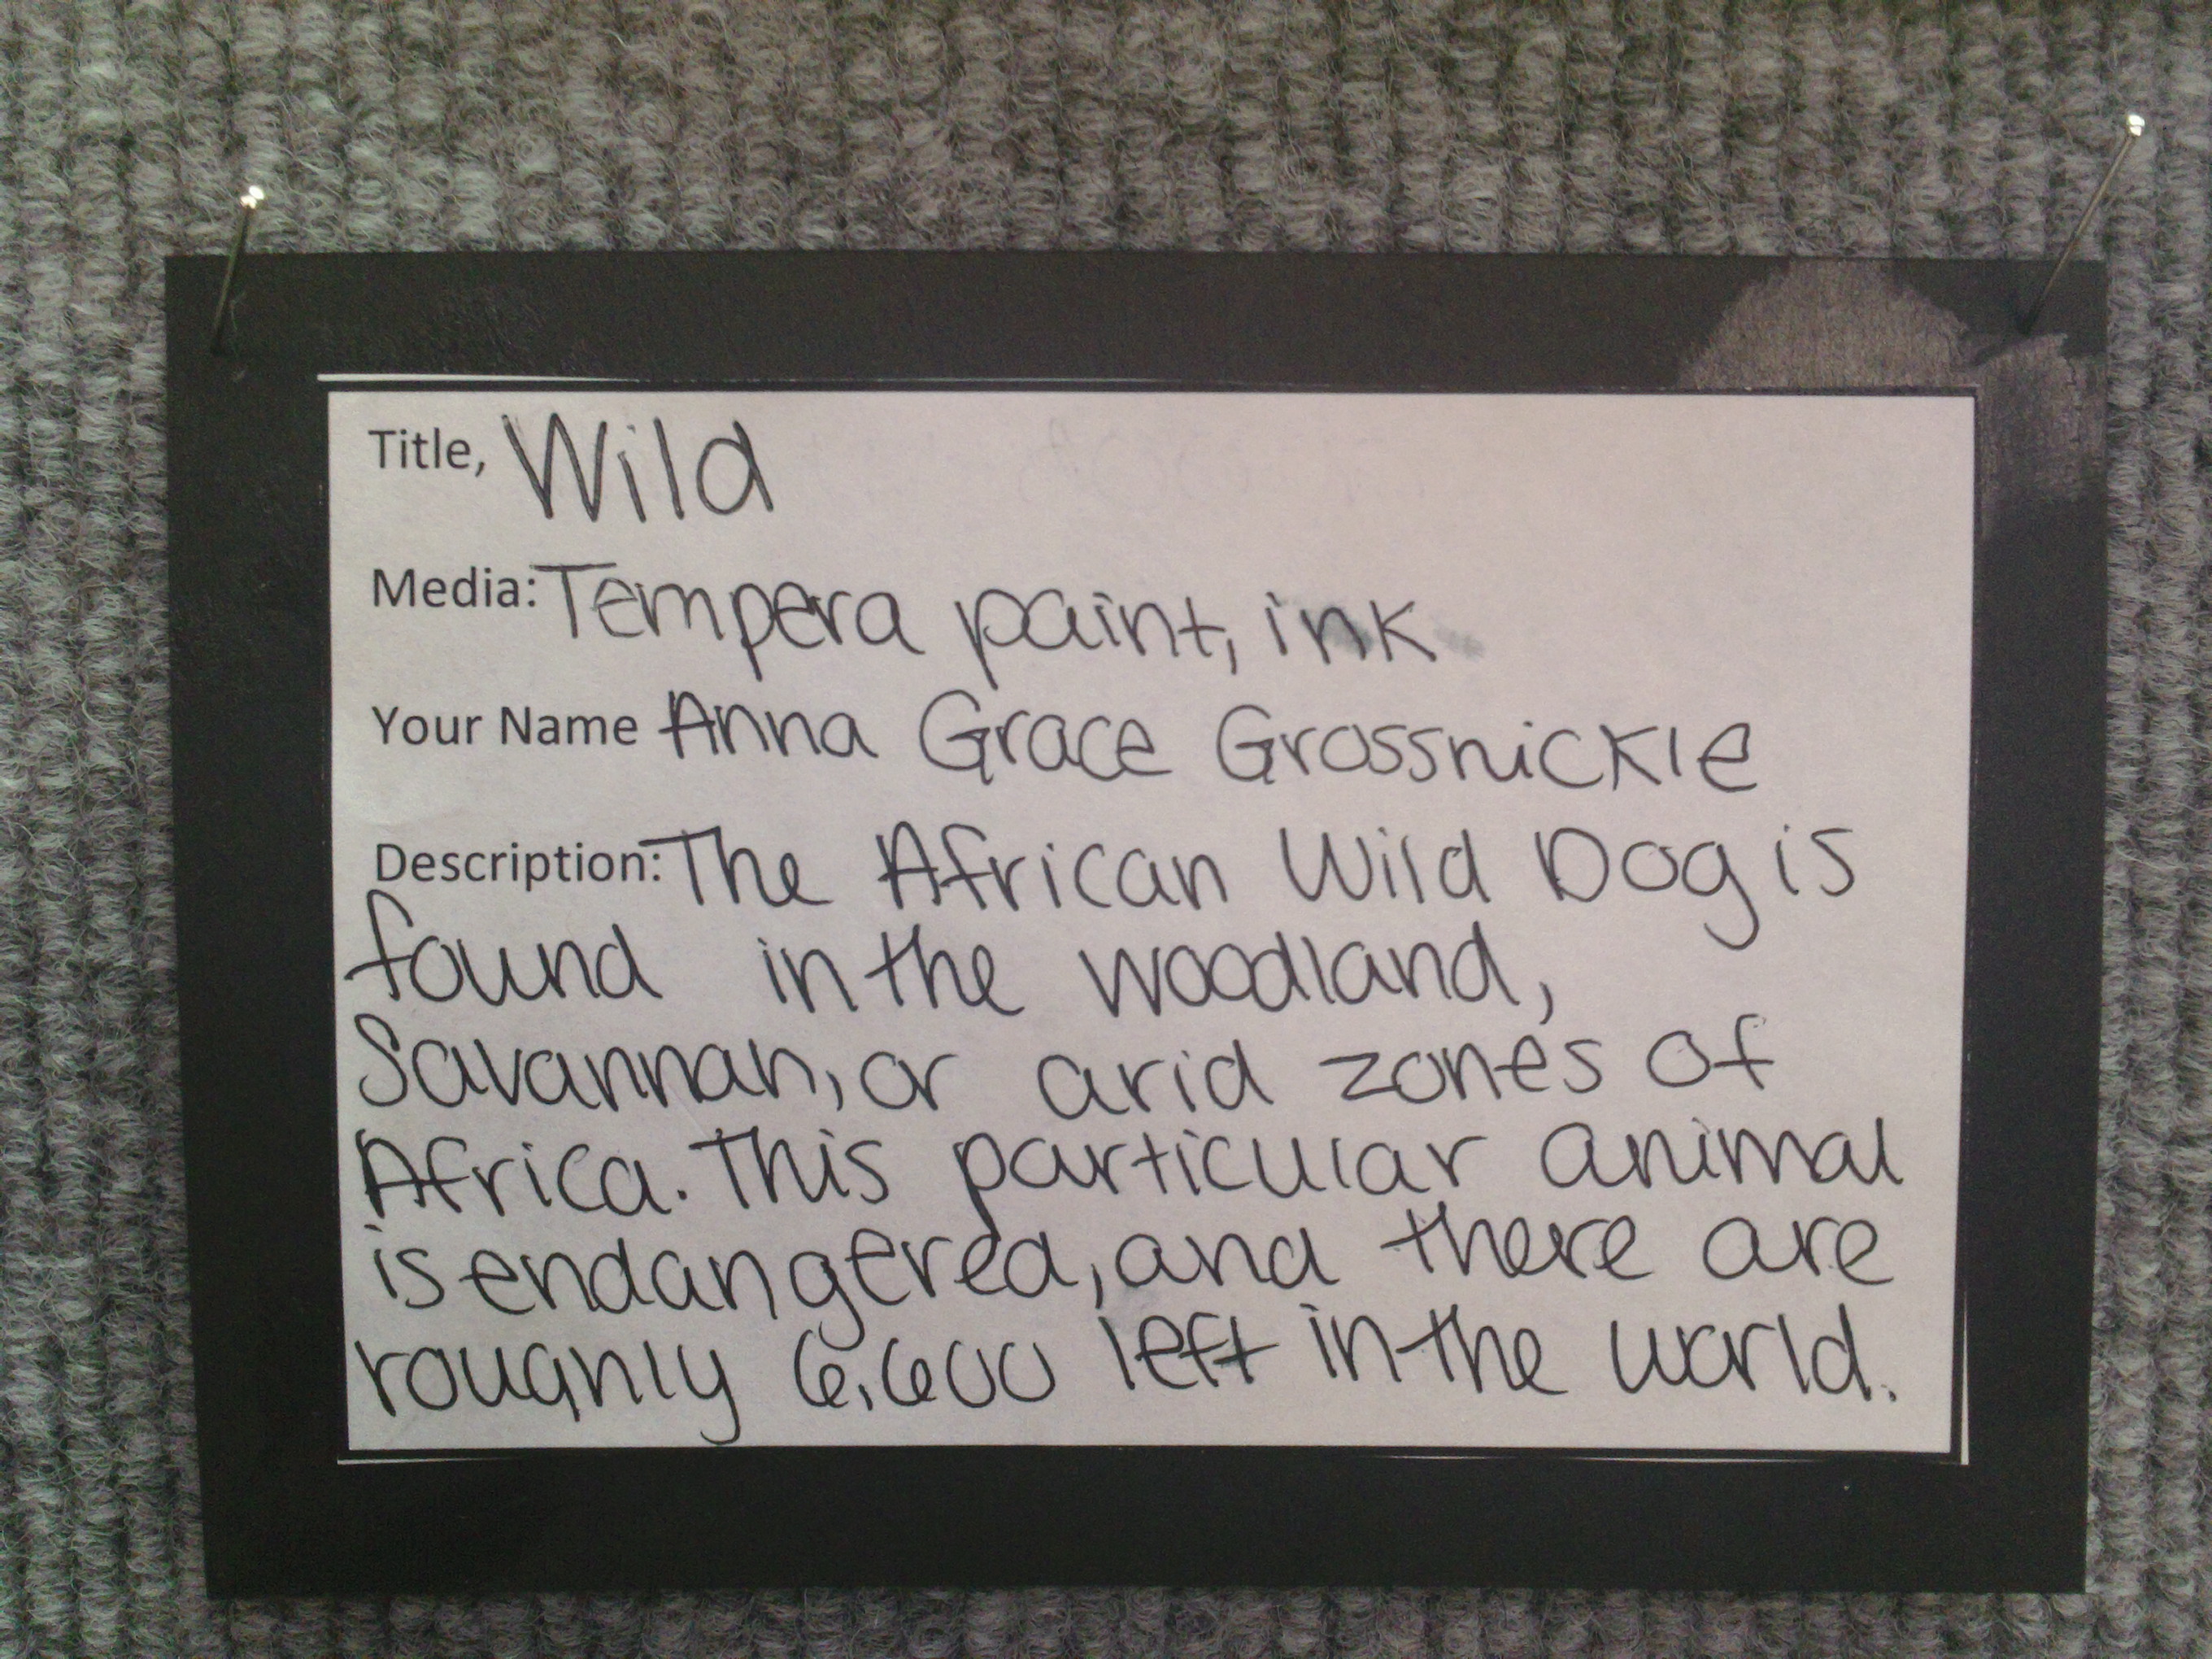 Title, Wild
Media: Tempera paint, ink
Your Name Anna Grace Grossnickle
Description: The African Wild Dog is
found in the woodland,
Savannah, or arid zones of
Africa. This particular animal
is endangered, and there are
roughly 6,600 left in the world.